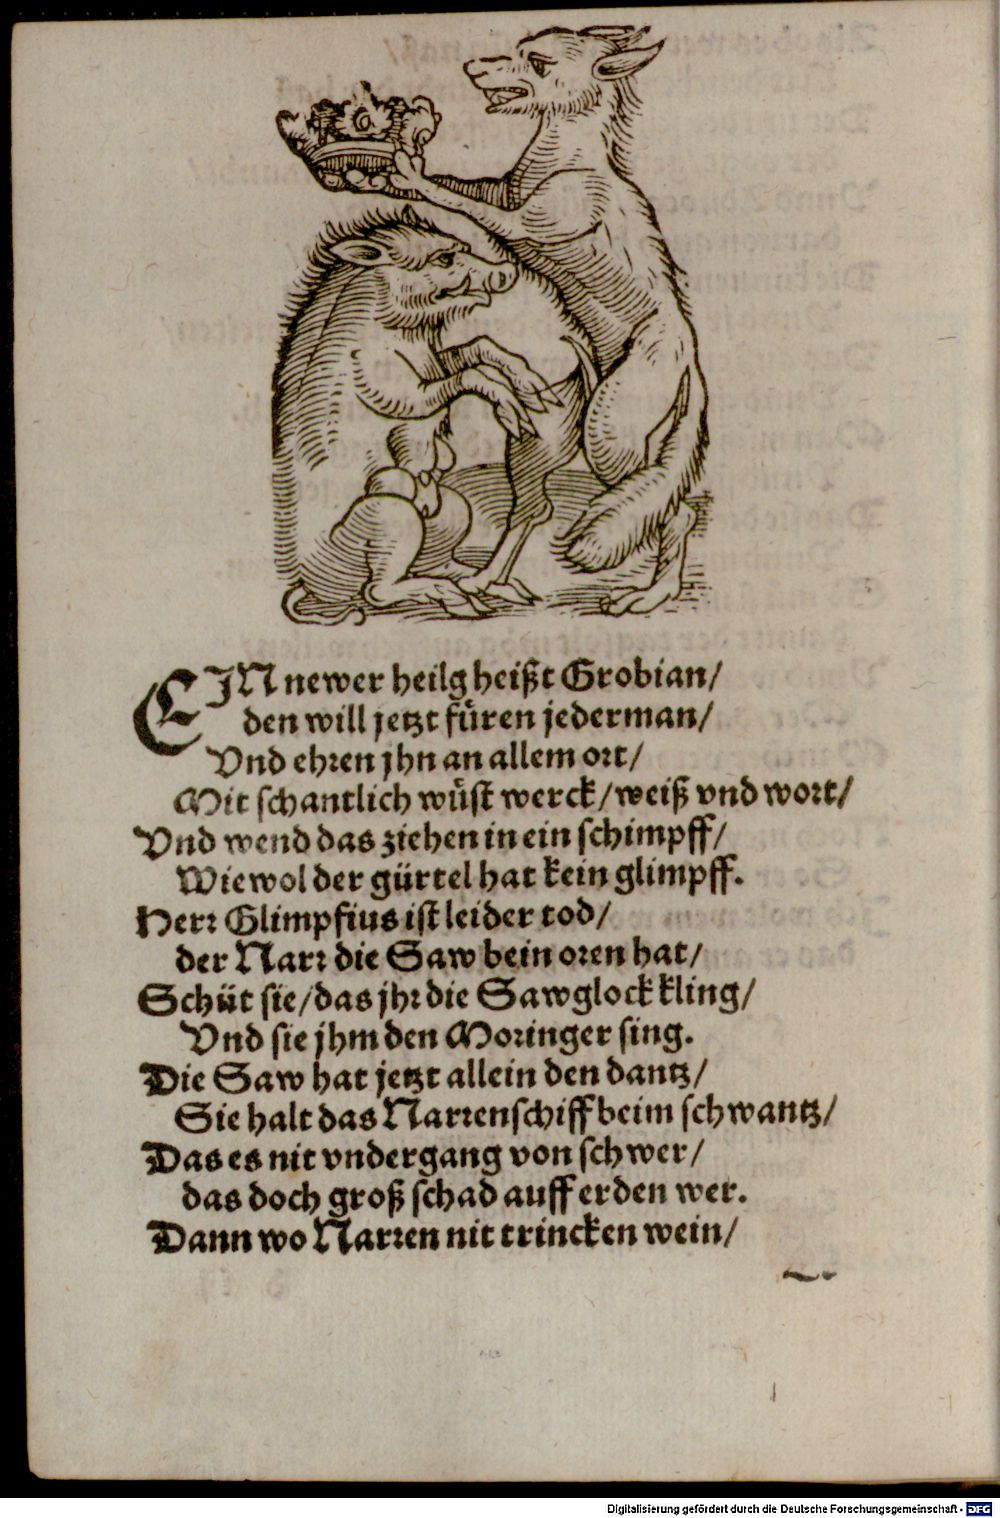 EIN newer heilg heißt Grobian/
den will jetzt füren jederman/
Vnd ehren jhn an allem ort/
Mit schantlich wüst werck/weiß vnd wort/
Vnd wend das ziehen in ein schimpff/
Wiewol der gürtel hat kein glimpff.
Herr Glimpfius ist leider tod/
der Narr die Saw bein oren hat/
Schüt sie/das jhr die Sawglock kling/
Vnd sie jhm den Moringer sing.
Die Saw hat jetzt allein den dantz/
Sie halt das Narrenschiff beim schwantz/
Das es nit vndergang von schwer/
das doch groß schad auff erden wer.
Dann wo Narren nit trincken wein/
Digitalisierung gefördert durch die Deutsche Forschungsgemeinschaft - DFG